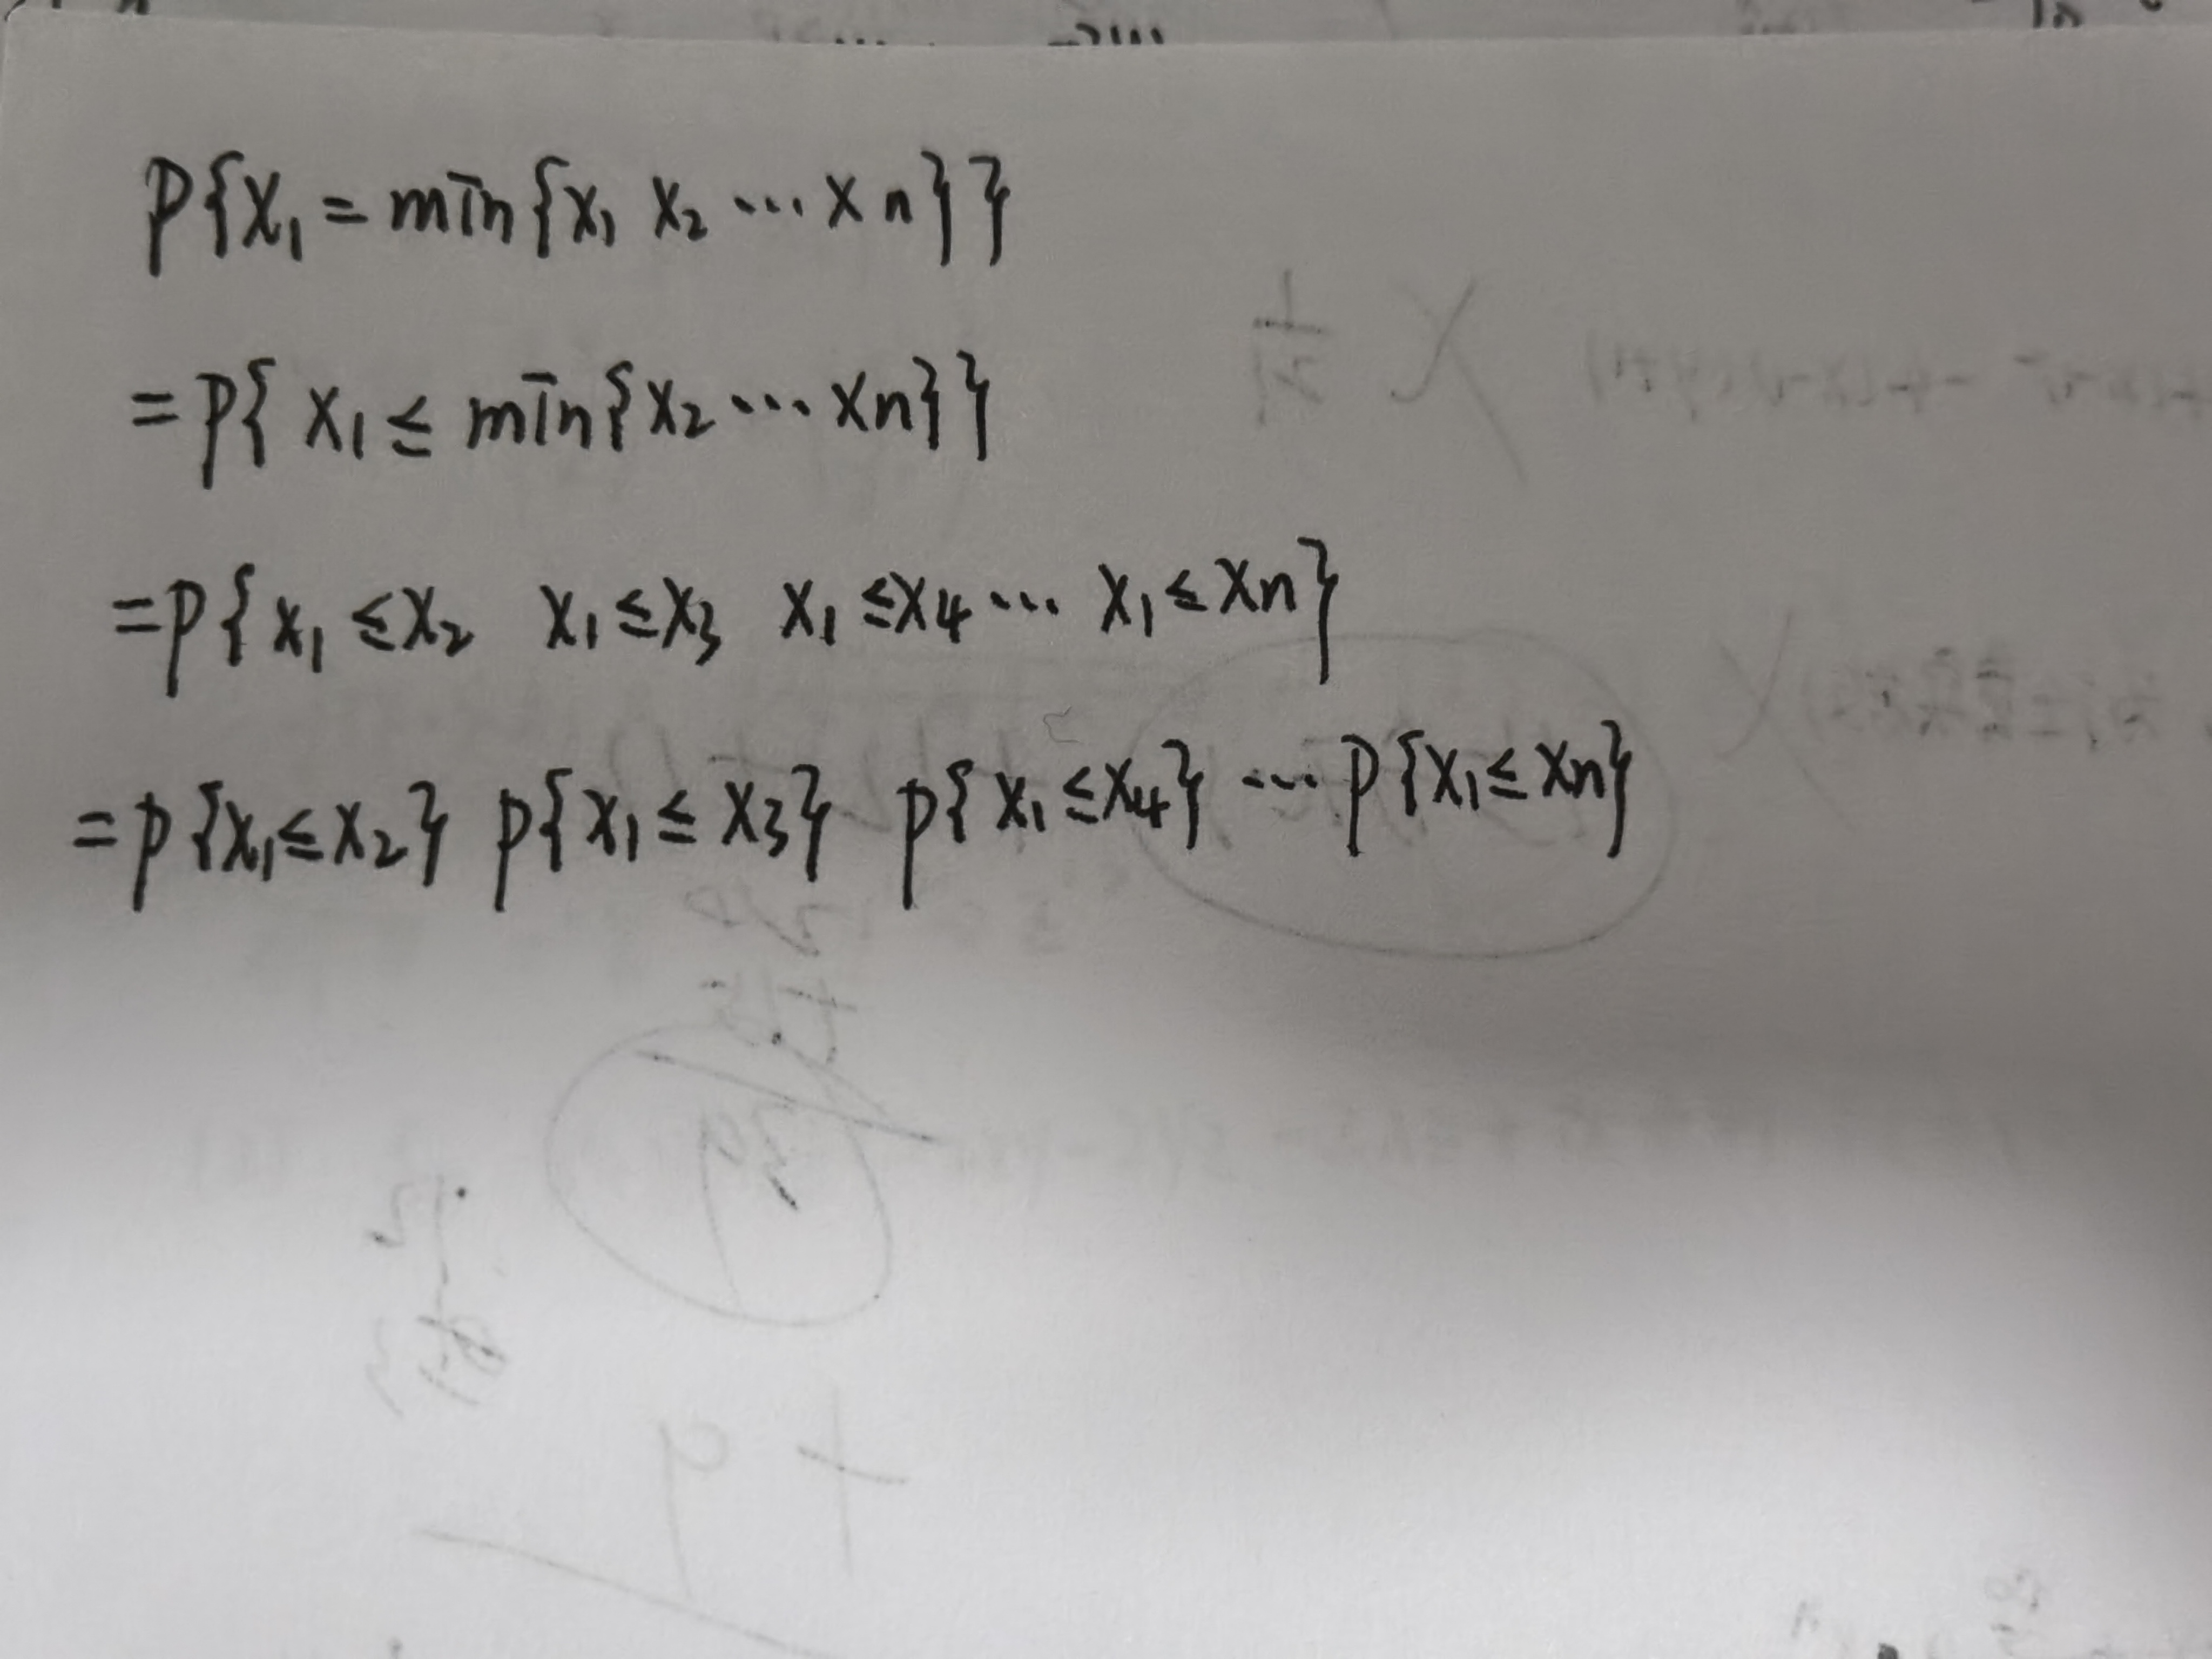 P{X₁ = min{X₁ X₂ ... Xn}}
= P{ X₁ ≤ min{X₂ ... Xn}}
= P{ X₁ ≤ X₂ X₁ ≤ X₃ X₁ ≤ X₄ ... X₁ ≤ Xn}
= P{X₁ ≤ X₂} P{X₁ ≤ X₃} P{X₁ ≤ X₄} ... P{X₁ ≤ Xn}